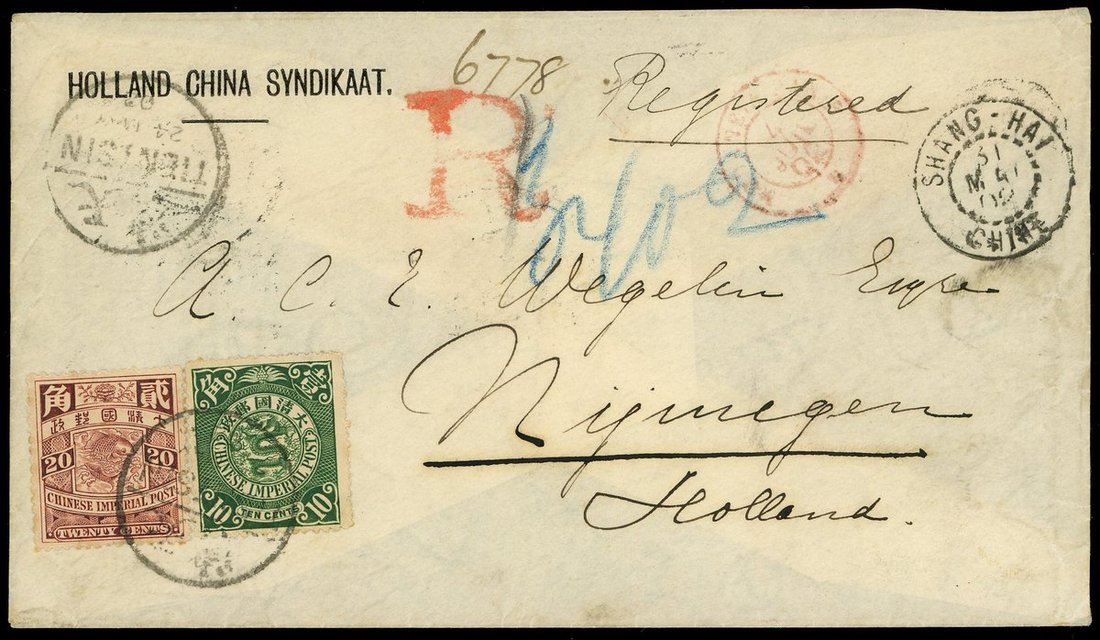 HOLLAND CHINA SYNDIKAAT.
6778
Registered
R
TIENTSIN
24
SHANG-HAI
31
MAI
02
CHINE
A. C. E. Wegelin Esqre
Nijmegen
Holland.
角 貳
政郵國清大
20 20
CHINESE IMPERIAL POST
TWENTY CENTS
角 壹
政郵國清大
CHINESE IMPERIAL POST
10 TEN CENTS 10